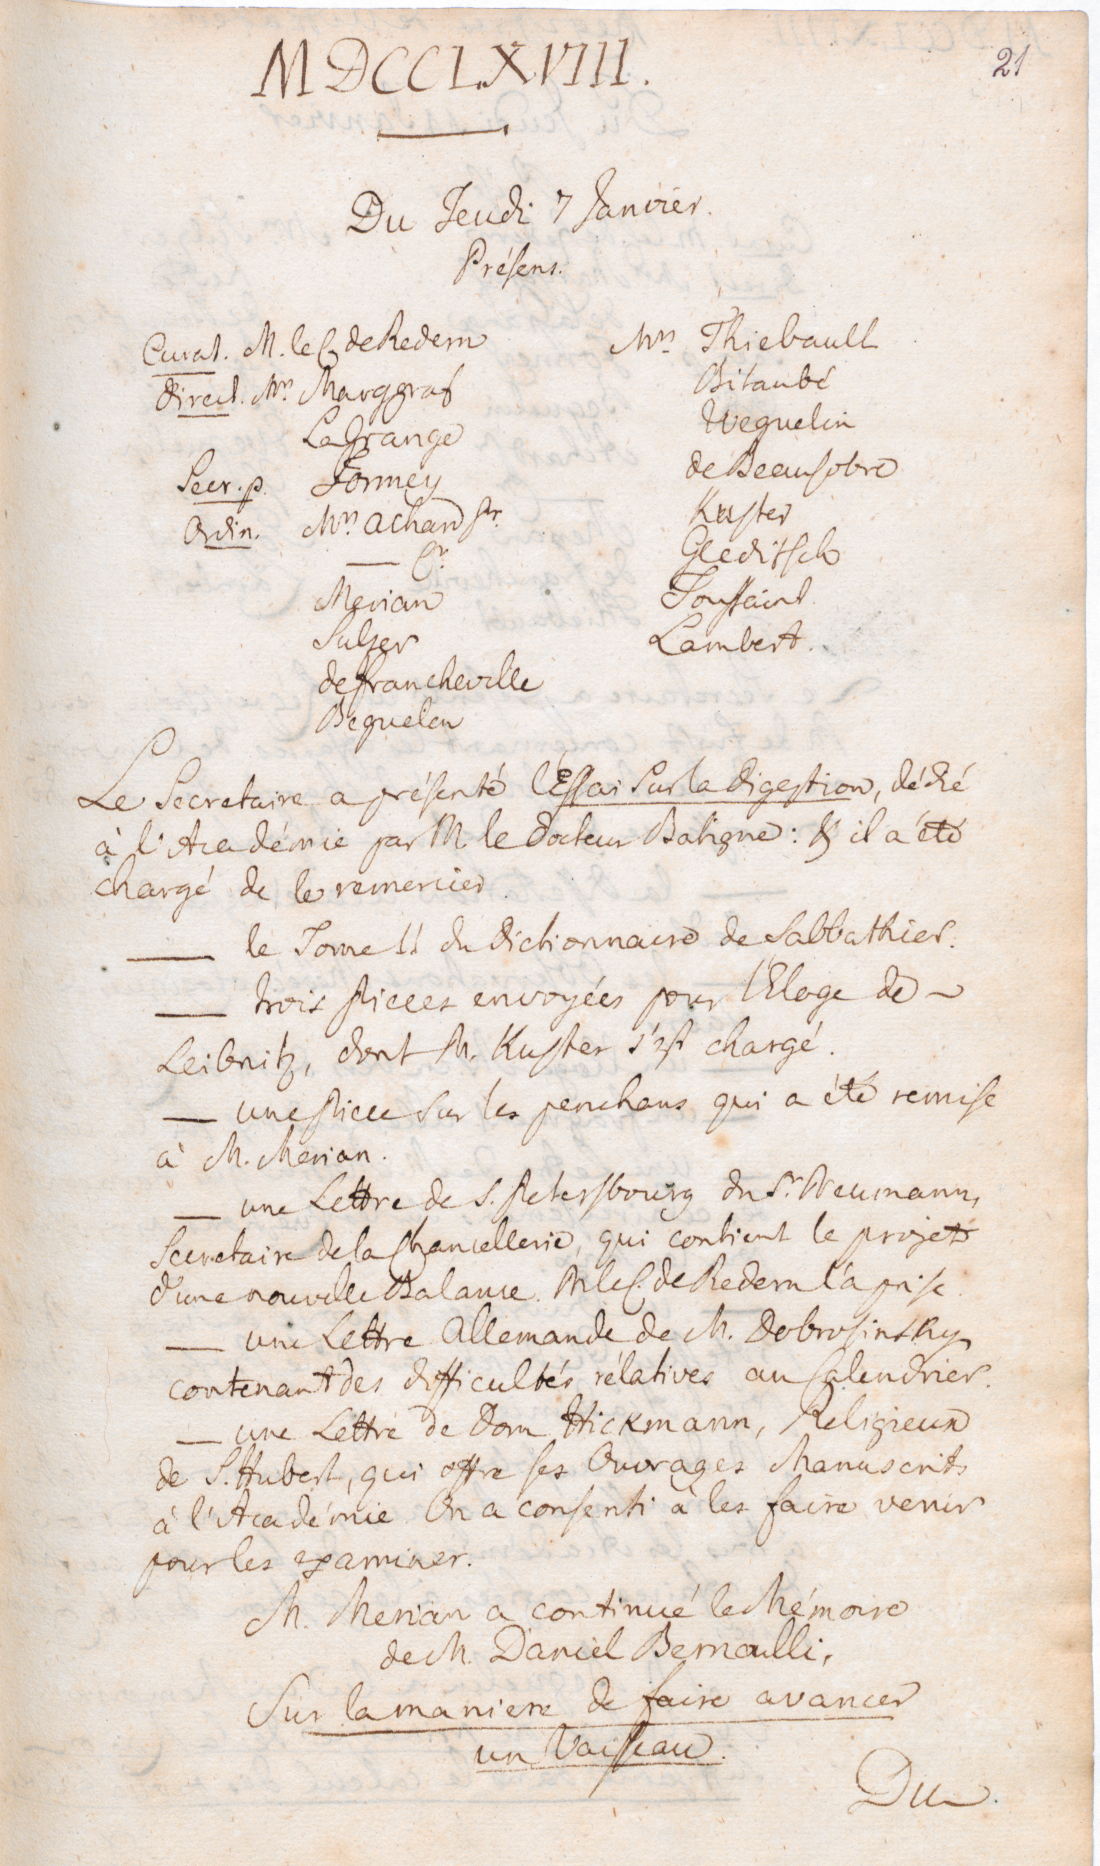 MDCCLXVIII.
21
Du Jeudi 7 Janvier.
Présens.
Curat. M. le C. de Redern
Direct. Mrs. Marggraf
La Grange
Secr. p. Formey
Ordin. Mrs. Achard Sr.
— Jr.
Merian
Sulzer
de Francheville
Beguelin
Mrs Thiebault
Bitaubé
Weguelin
de Beausobre
Kuster
Gleditsch
Toussaint
Lambert.
Le Secretaire a présenté l'Essai sur la digestion, dédié
à l'Académie par M le Docteur Batigne: & il a été
chargé de le remercier
— le Tome II du Dictionnaire de Sabbathier.
— trois pieces envoyées pour l'Eloge de
Leibnitz, dont M. Kuster s'est chargé.
— une piece sur les penchans qui a été remise
à M. Merian.
— une Lettre de S. Petersbourg du Sr. Neumann,
Secretaire de la Chancellerie, qui contient le projet
d'une nouvelle Balance. M le C. de Redern l'a prise.
— une Lettre Allemande de M. Dobrosinsky
contenant des difficultés rélatives au Calendrier.
— une Lettre de Dom Hickmann, Religieux
de S. Hubert, qui offre ses Ouvrages Manuscrits
à l'Académie. On a consenti à les faire venir
pour les examiner.
M. Merian a continué le Mémoire
de M. Daniel Bernoulli,
Sur la maniere de faire avancer
un Vaisseau.
Du